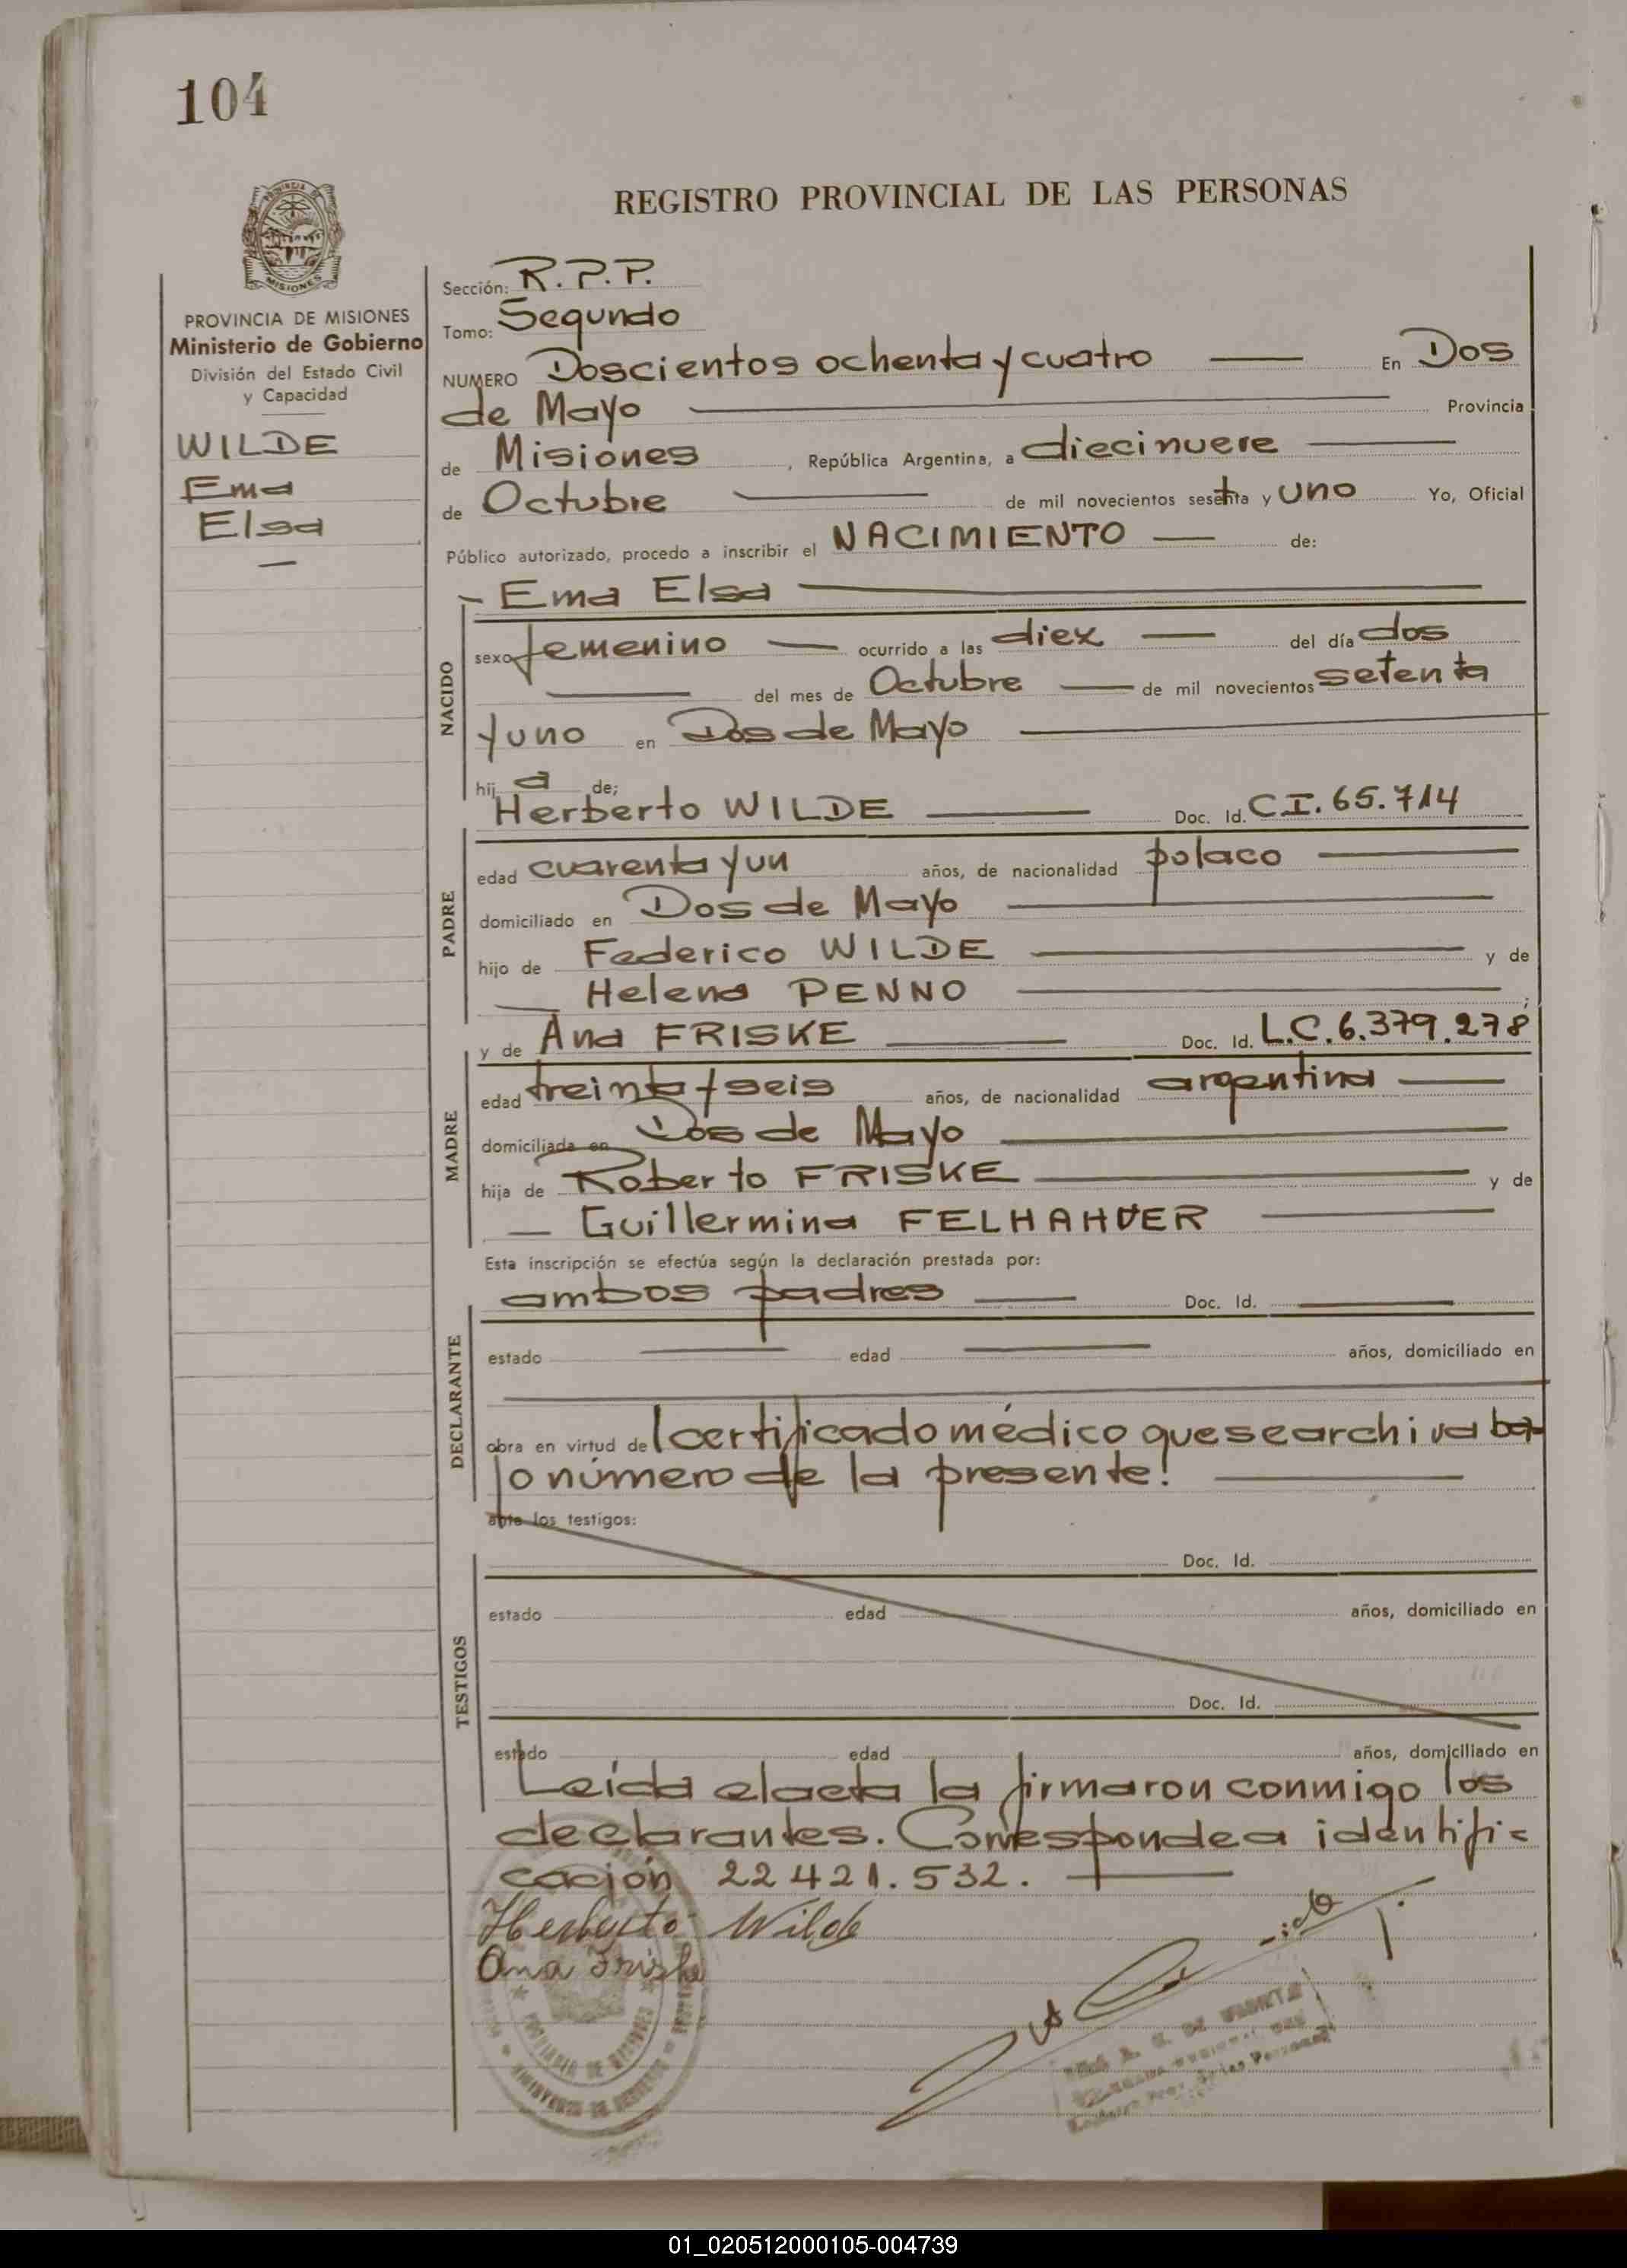 104
REGISTRO PROVINCIAL DE LAS PERSONAS
MISIONES
PROVINCIA DE MISIONES
Ministerio de Gobierno
División del Estado Civil
y Capacidad
WILDE
Ema
Elsa
Sección: R.P.P.
Tomo: Segundo
NUMERO Doscientos ochenta y cuatro En Dos
de Mayo Provincia
de Misiones, República Argentina, a diecinueve
de Octubre de mil novecientos setenta y uno Yo, Oficial
Público autorizado, procedo a inscribir el NACIMIENTO de:
Ema Elsa
NACIDO
sexo femenino ocurrido a las diez del día dos
del mes de Octubre de mil novecientos setenta
y uno en Dos de Mayo
hija de;
Herberto WILDE Doc. Id. C.I. 65.714
PADRE
edad cuarenta y un años, de nacionalidad polaco
domiciliado en Dos de Mayo
hijo de Federico WILDE y de
Helena PENNO;
y de Ana FRISKE Doc. Id. L.C. 6.379.278
MADRE
edad treinta y seis años, de nacionalidad argentina
domiciliada en Dos de Mayo
hija de Roberto FRISKE y de
Guillermina FELHAHUER
Esta inscripción se efectúa según la declaración prestada por:
ambos padres Doc. Id.
DECLARANTE
estado edad años, domiciliado en
obra en virtud del certificado médico que se archiva ba-
jo número de la presente!
ante los testigos:
TESTIGOS
Doc. Id.
estado edad años, domiciliado en
Doc. Id.
estado edad años, domiciliado en
Leída el acta la firmaron conmigo los
declarantes. Corresponde a identifi=
cación 22421.532.
Herberto Wilde
Ana Friske
01_020512000105-004739